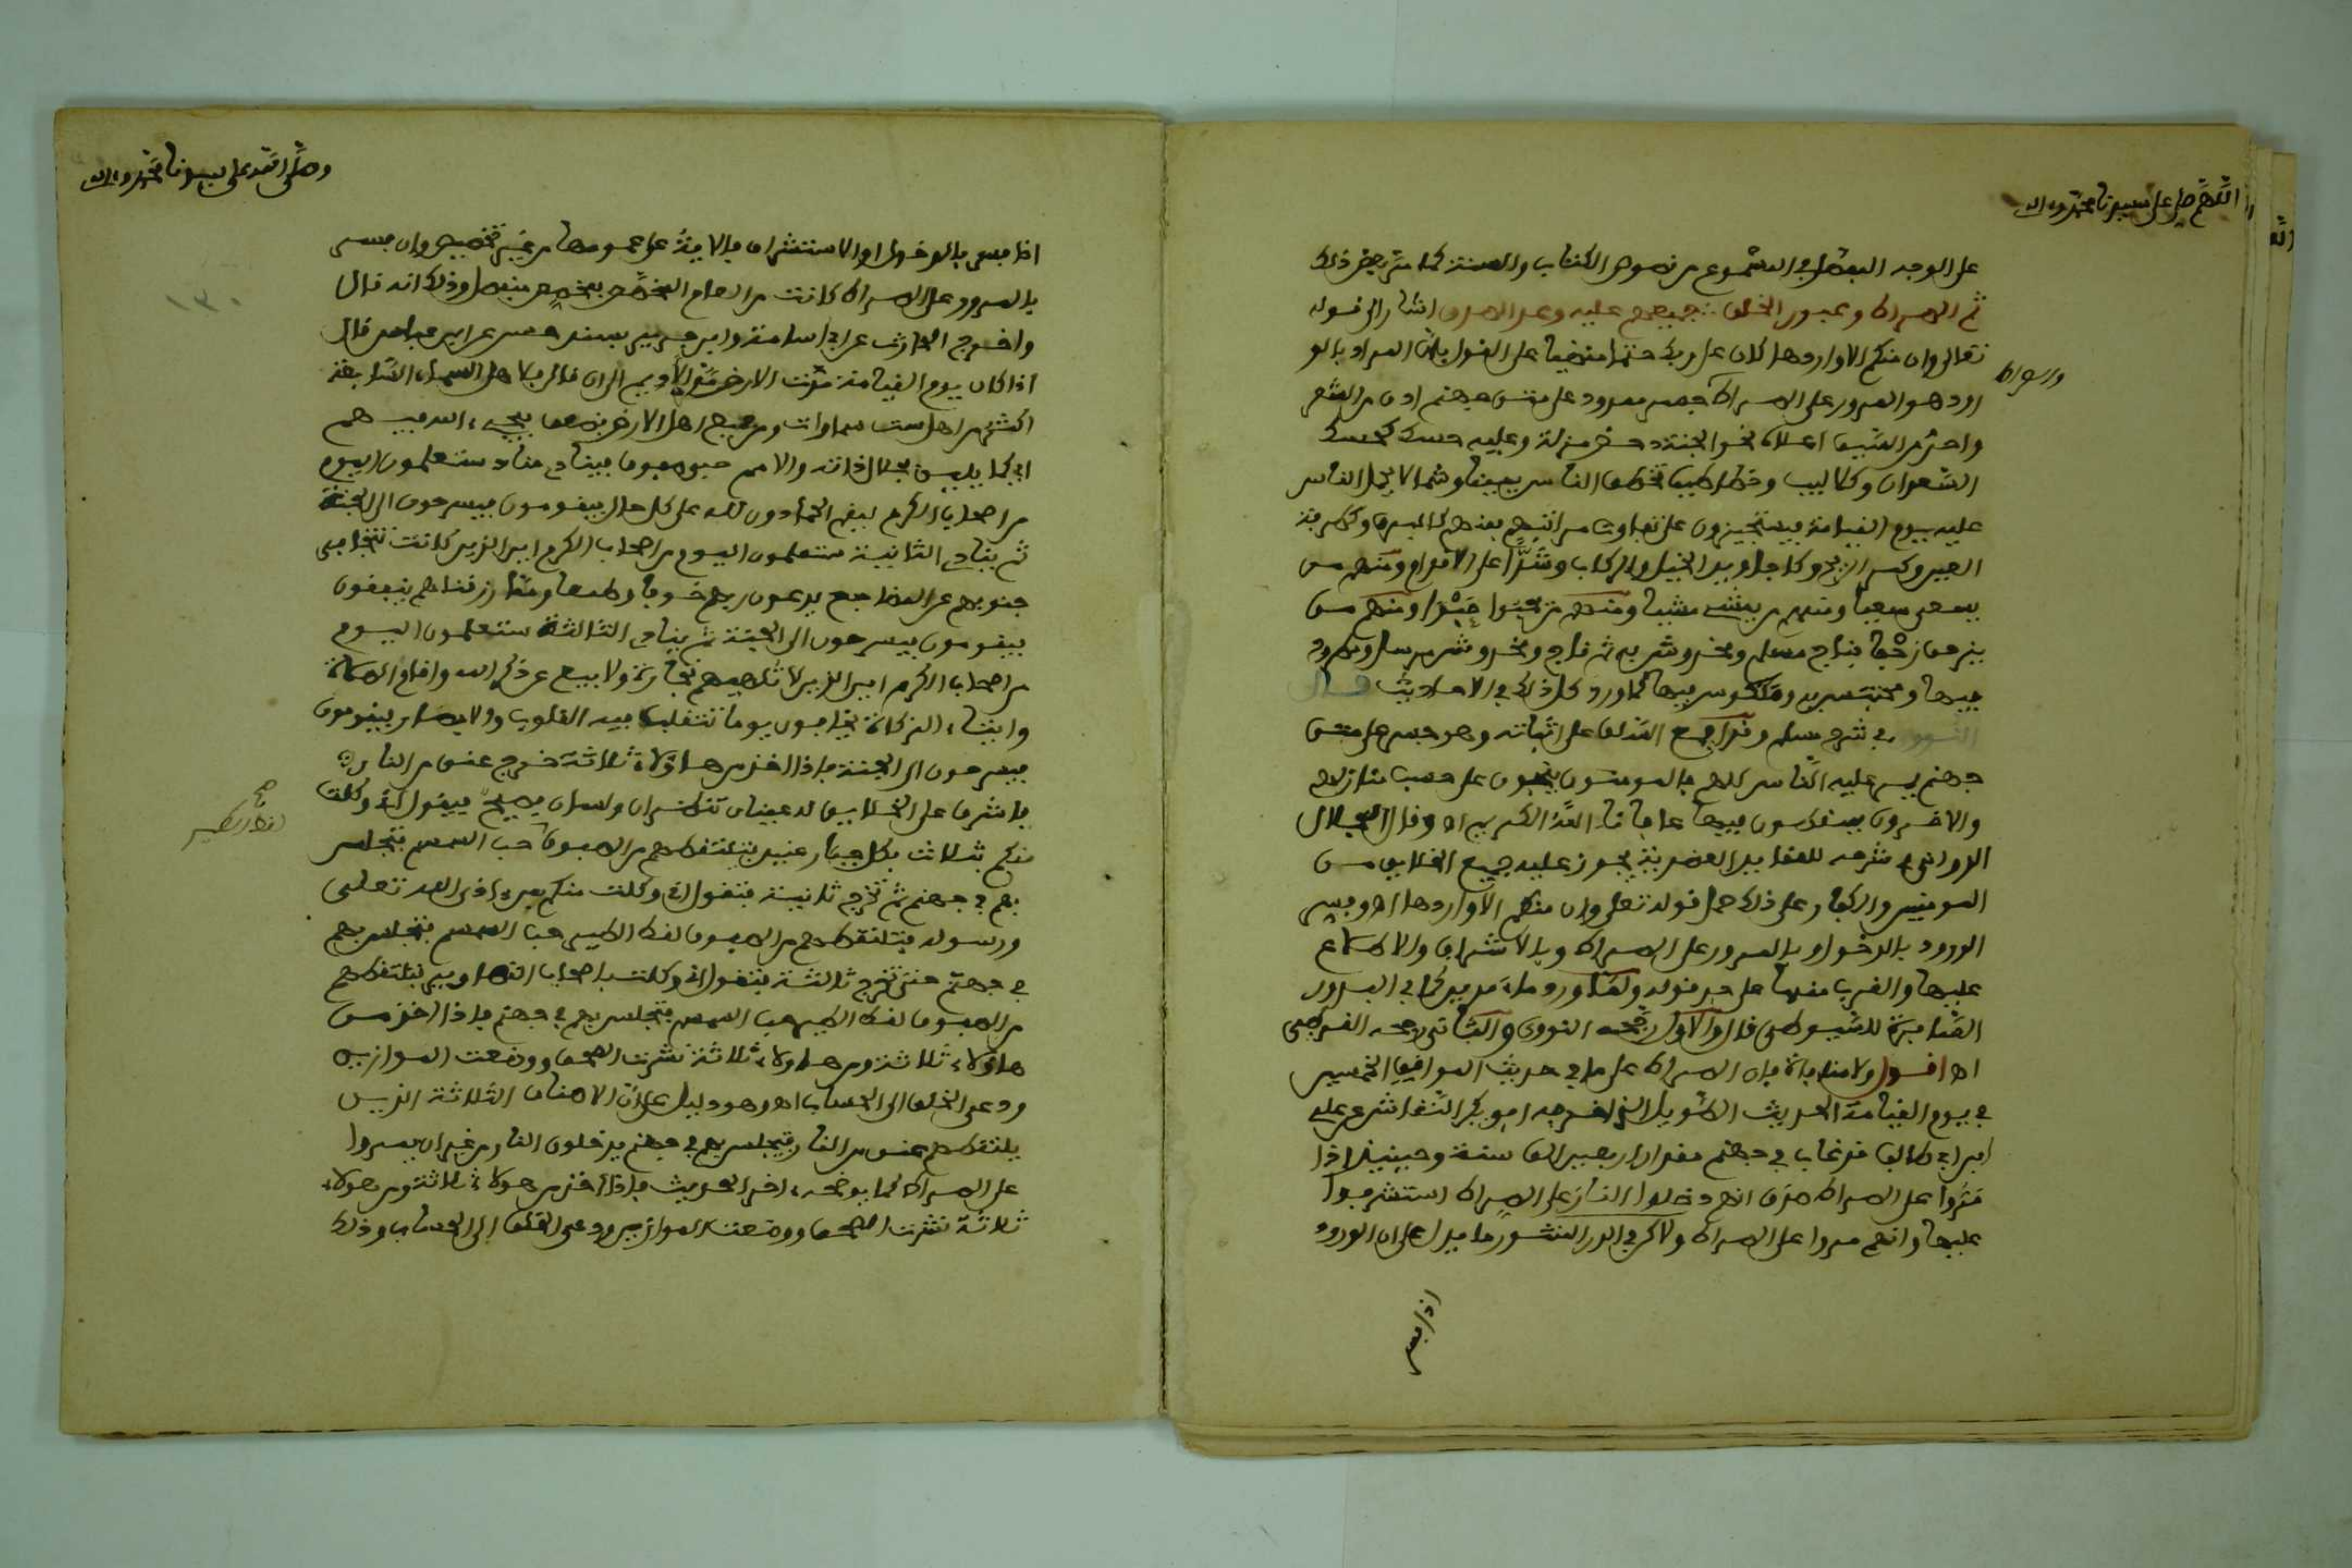 اللهم صل على سيدنا محمد وءاله
على الوجه المفصل في المسموع من نصوص الكتاب والسنة كما مر بعض ذلك
ثم الصراط وعبور الخلق جميعهم عليه وعلى الصراط اشار الى قوله
تعالى وان منكم الا واردها كان على ربك حتما مقضيا على القول بان المراد بالو
والصراط
رود هو المرور على الصراط جسر ممدود على متن جهنم ادق من الشعر
واحد من السيف اعلاه نحو الجنة دحض مزلة وعليه حسك كحسك
السعدان وكلاليب وخطاطيف تخطف الناس يمينا وشمالا يحمل الناس
عليه يوم القيامة فيستجيزون على تفاوت مراتبهم بعضهم كالبرق وكطرفة
العين وكمر الريح وكاجاويد الخيل والركاب وشدا على الاقدام ومنهم من
يسعى سعيا ومنهم من يمشي مشيا ومنهم من يحبوا حبوا ومنهم من
يزحف زحفا فناج مسلم ومخدوش به ثم ناج ومخدوش مرسل ومطرود
فيها ومحتبس به ومنكوس فيها كما ورد كل ذلك في الاحاديث قال
النووي في شرح مسلم وقد اجمع السلف على اثباته وهو جسر على متن
جهنم يمر عليه الناس كلهم فالمومنون ينجون على حسب منازلهم
والاخرون يسقطون فيها عافانا الله الكريم اه وقال الجلال
الدواني في شرحه للعقايد العضدية يجوز عليه جميع الخلايق من
المومنين والكفار وعلى ذلك حمل قوله تعالى وان منكم الا واردها اه وفسر
الورود بالدخول وبالمرور على الصراط وبالاشراف والاطلاع
عليها والقرب منها على حد قوله ولما ورد ماء مدين كما في البدور
السافرة للسيوطي قال والاول رجحه النووي والثاني رجحه القرطبي
اه اقول ولا منافاة فان الصراط على ما في حديث المواقف الخمسين
في يوم القيامة الحديث الطويل الذي اخرجه ابو بكر الشافعي عن علي
ابن ابي طالب قد غاب في جهنم مقدار اربعين الف سنة وحينئذ اذا
مروا على الصراط صدق انهم دخلوا النار على الصراط استشرفوا
عليها وانهم مروا على الصراط ولاكن في الدر المنثور ما يدل على ان الورود
اذا فسر
وصلى الله على سيدنا محمد وءاله
١٣٠
اذا فسر بالدخول او الاستشراف فالاية على عمومها من غير تخصيص وان فسر
بالمرور على الصراط كانت من العام المخصص بمخصص منفصل وذلك انه قال
واخرج الحارث عن ابي اسامة وابن جرير بسند حسن عن ابن عباس قال
اذا كان يوم القيامة مدت الارض مد الاديم الى ان قال فلاهل السماء السابعة
اكثر من اهل ست سماوات ومن جميع اهل الارض بضعف يجيء الله فيهم
اي كما يليق بجلال ذاته والامم جثي صفوف فينادي مناد ستعلمون اليوم
من اصحاب الكرم ليقم الحمادون لله على كل حال فيقومون فيسرحون الى الجنة
ثم ينادي الثانية ستعلمون اليوم من اصحاب الكرم اين الذين كانت تتجافى
جنوبهم عن المضاجع يدعون ربهم خوفا وطمعا ومما رزقناهم ينفقون
فيقومون فيسرحون الى الجنة ثم ينادي الثالثة ستعلمون اليوم
من اصحاب الكرم اين الذين لا تلهيهم تجارة ولا بيع عن ذكر الله واقام الصلاة
وايتاء الزكاة يخافون يوما تتقلب فيه القلوب والابصار فيقومون
فيسرحون الى الجنة فاذا اخذ من هاؤلاء ثلاثة خرج عنق من النار
فاشرف على الخلايق له عينان تنظران ولسان فصيح فيقول اني وكلت
منكم بثلاث بكل جبار عنيد فيلتقطهم من الصفوف حب السمسم فتجلس
لقط الطير
بهم في جهنم ثم تخرج ثانية فتقول اني وكلت منكم بمن ءاذى الله تعالى
ورسوله فتلتقطهم من الصفوف لقط الطير حب السمسم فتجلس بهم
في جهنم حتى تخرج ثالثة فتقول اني وكلت باصحاب التصاوير فتلتقطهم
من الصفوف لقط الطير حب السمسم فتجلس بهم في جهنم فاذا اخذ من
هاؤلاء ثلاثة ومن هاولاء ثلاثة نشرت الصحف ووضعت الموازين
ودعي الخلق الى الحساب اه وهو دليل على ان الاصناف الثلاثة الذين
يلتقطهم عنق من النار فتجلس بهم في جهنم يدخلون النار من غير ان يمروا
على الصراط كما يوضحه ءاخر الحديث فاذا اخذ من هولاء ثلاثة ومن هولاء
ثلاثة نشرت الصحف ووضعت الموازين ودعي الخلق الى الحساب وذلك